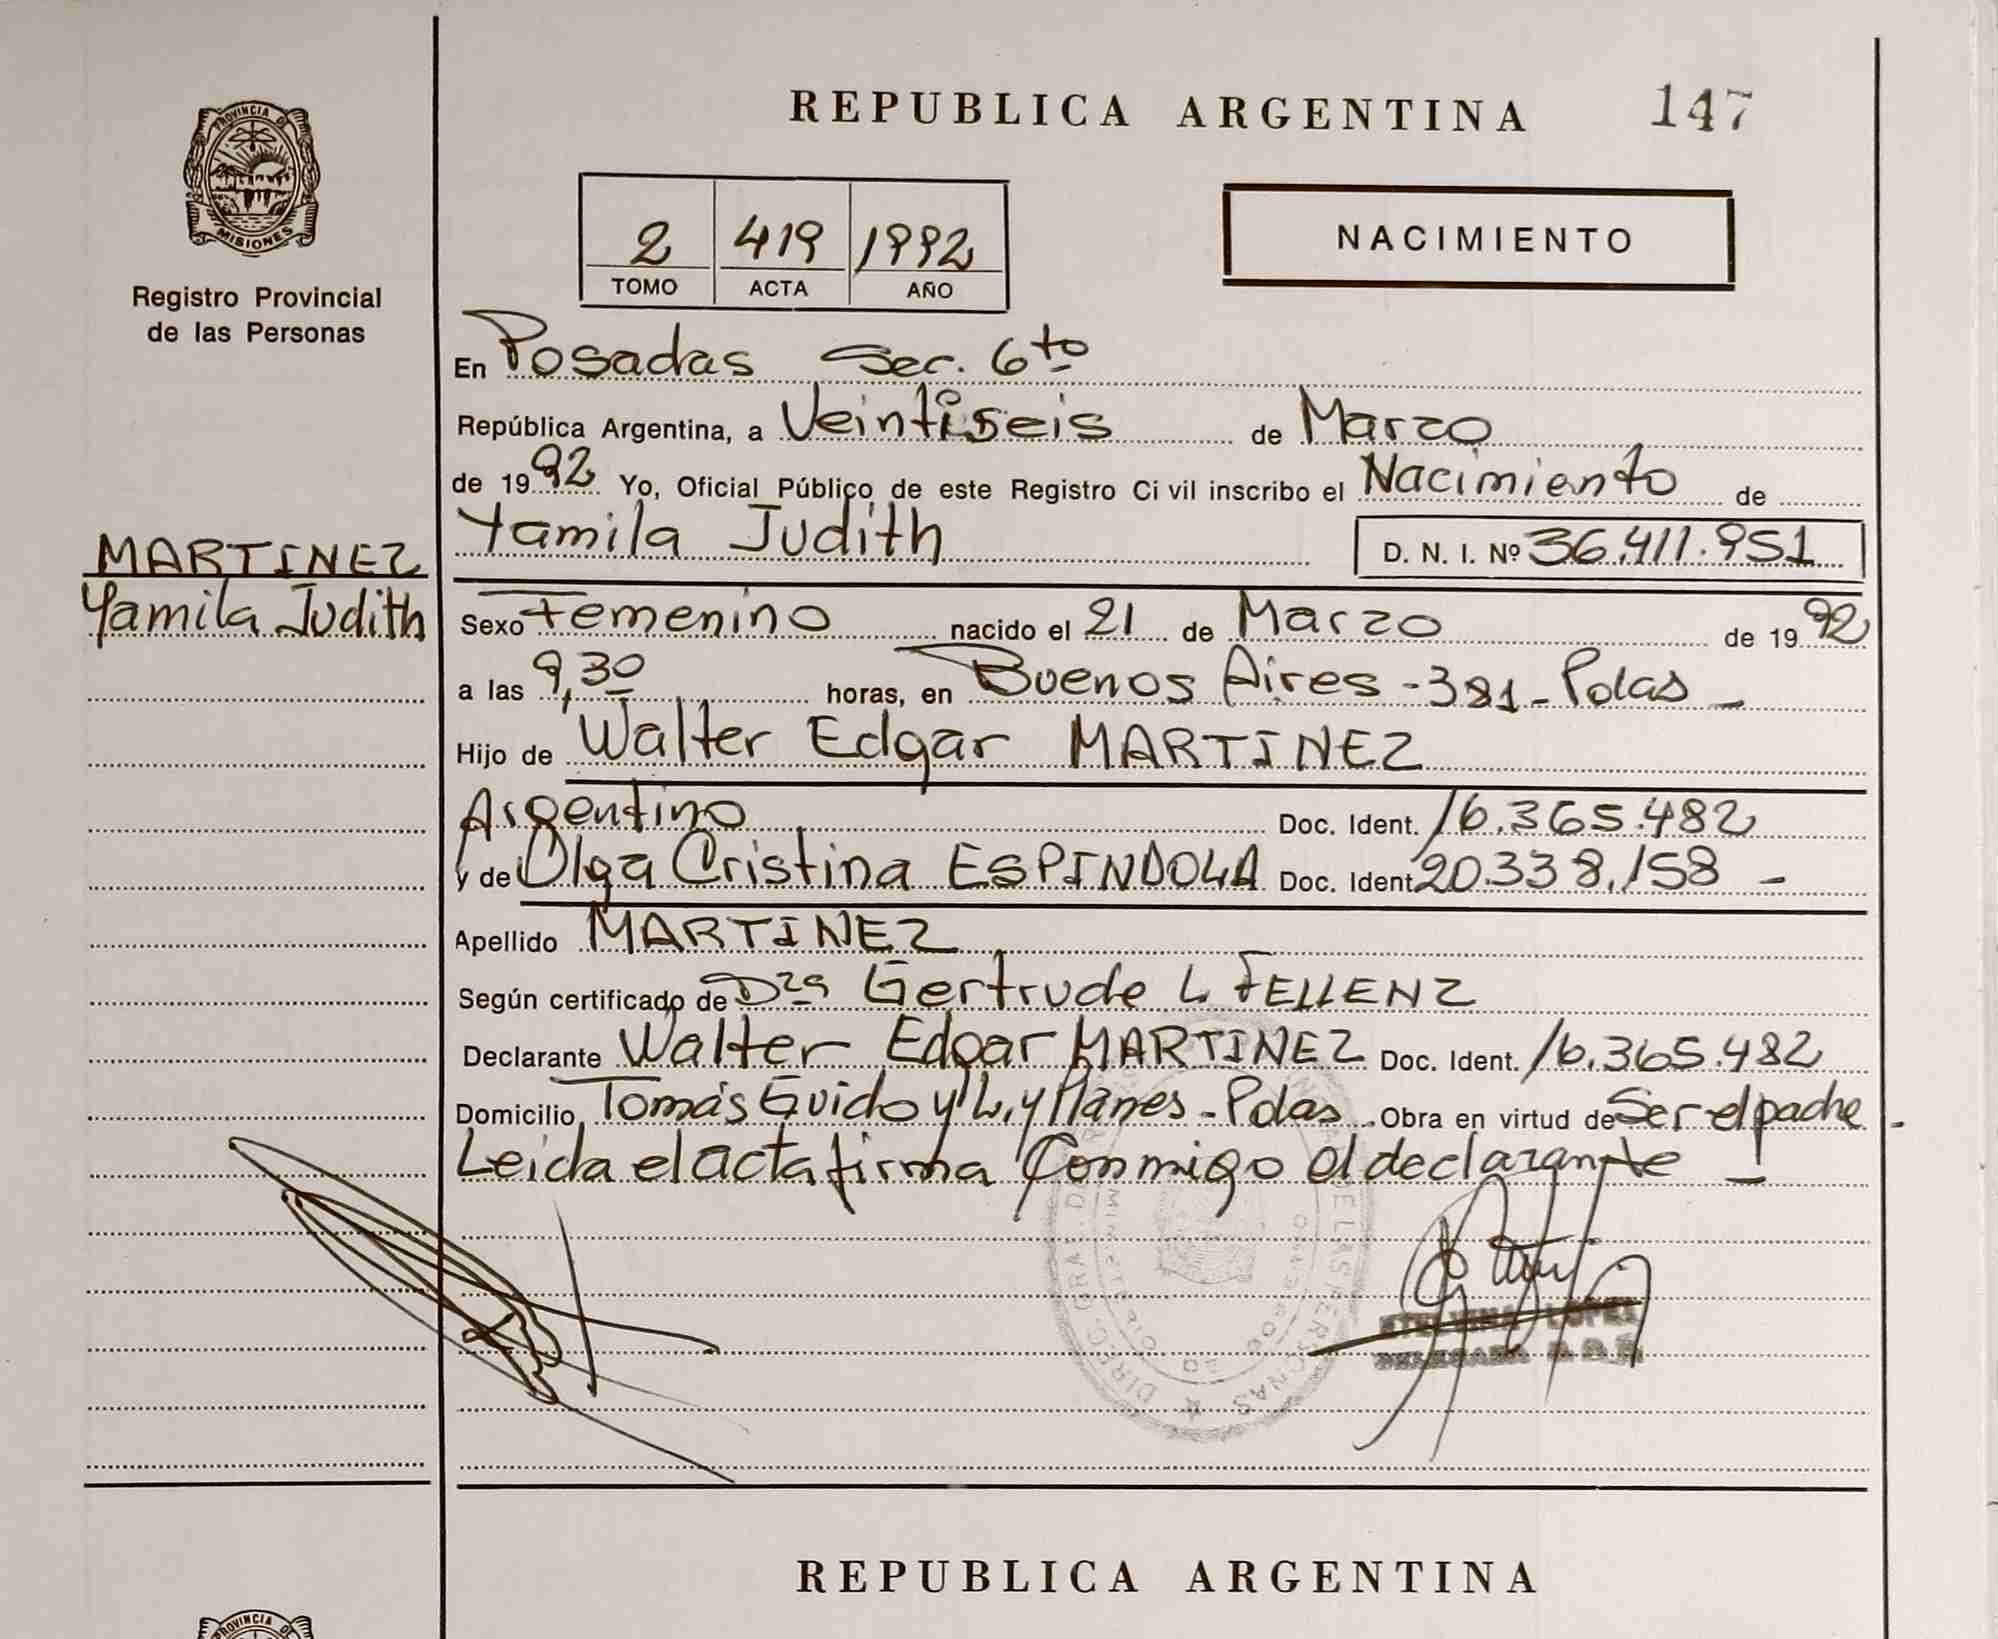 REPUBLICA ARGENTINA 147
PROVINCIA DE
MISIONES
Registro Provincial
de las Personas
2 419 1992
TOMO ACTA AÑO
NACIMIENTO
En Posadas Sec. 6to
República Argentina, a Veintiseis de Marzo
de 1992 Yo, Oficial Público de este Registro Civil inscribo el Nacimiento de
Yamila Judith D. N. I. Nº 36.411.951
MARTINEZ
Yamila Judith
Sexo Femenino nacido el 21 de Marzo de 1992
a las 9,30 horas, en Buenos Aires - 381 - Pdas -
Hijo de Walter Edgar MARTINEZ
Argentino Doc. Ident. 16.365.482
y de Olga Cristina ESPINDOLA Doc. Ident 20.338.158 -
Apellido MARTINEZ
Según certificado de Dra Gertrude L. FELLENZ
Declarante Walter Edgar MARTINEZ Doc. Ident. 16.365.482
Domicilio Tomás Guido y L. y Planes - Pdas. Obra en virtud de Ser el padre -
Leida el acta firma Conmigo el declarante -
LOPEZ
REPUBLICA ARGENTINA
PROVINCIA DE